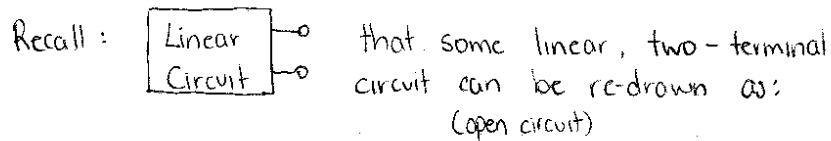 Recall : Linear that some linear, two-terminal
Circuit circuit can be re-drawn as:
(open circuit)